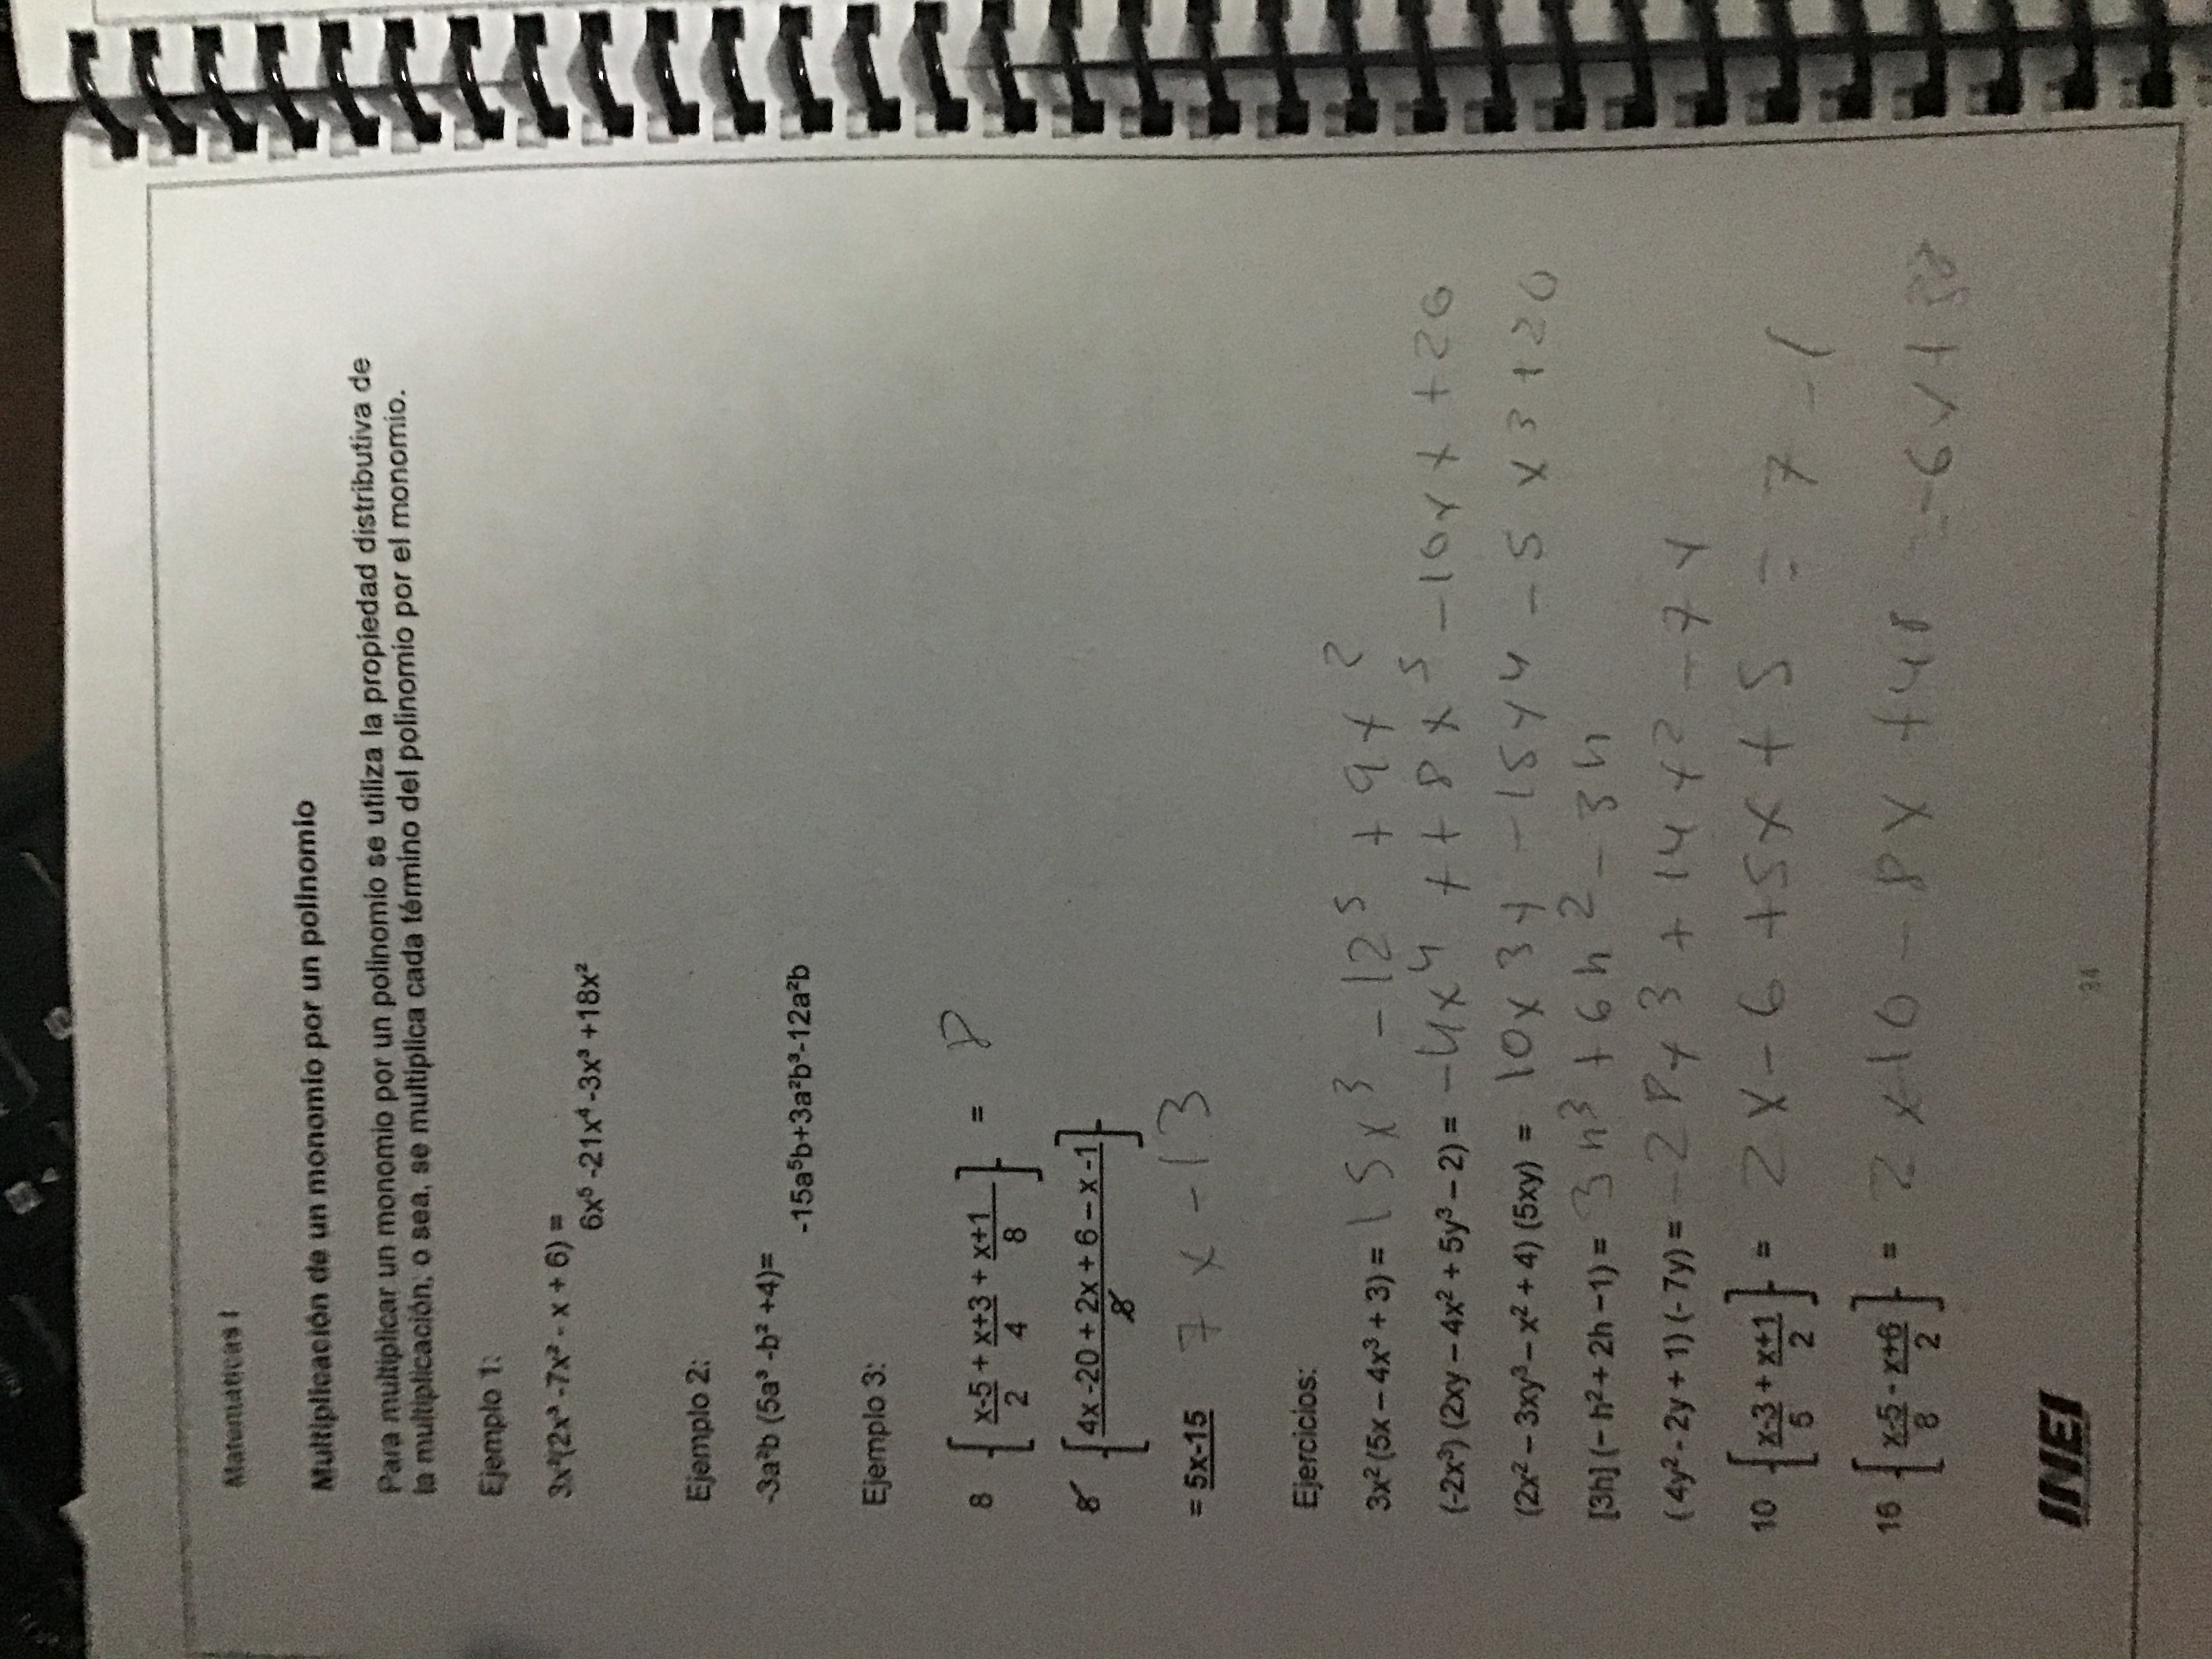 Matemáticas I
Multiplicación de un monomio por un polinomio
Para multiplicar un monomio por un polinomio se utiliza la propiedad distributiva de
la multiplicación, o sea, se multiplica cada término del polinomio por el monomio.
Ejemplo 1:
3x²(2x³ -7x² - x + 6) =
6x⁵ -21x⁴ -3x³ +18x²
Ejemplo 2:
-3a²b (5a³ -b² +4)=
-15a⁵b+3a²b³-12a²b
Ejemplo 3:
8 [ x-5/2 + x+3/4 + x+1/8 ] = 8
8 [ 4x -20 + 2x + 6 – x -1 / 8 ]
= 5x-15 7x - 13
Ejercicios:
3x² (5x – 4x³ + 3) = 15x³ - 12⁵ + 9x²
(-2x³) (2xy – 4x² + 5y³ – 2) = -4x⁴ + + 8x⁵ - 10xx + 20
(2x² – 3xy³ – x² + 4) (5xy) = 10x3y - 15y4 - 5x3 + 20
[3h] (– h² + 2h – 1) = 3h³ + 6h² - 3h
( 4y² - 2y + 1) (- 7y) = -28y3 + 14y² - 7y
10 [ x-3/5 + x+1/2 ] = 2x - 6 + 5x + 5 = 7 - 1
16 [ x-5/8 - x+6/2 ] = 2x10 - 8x + 48 = -6x +
INEI
34